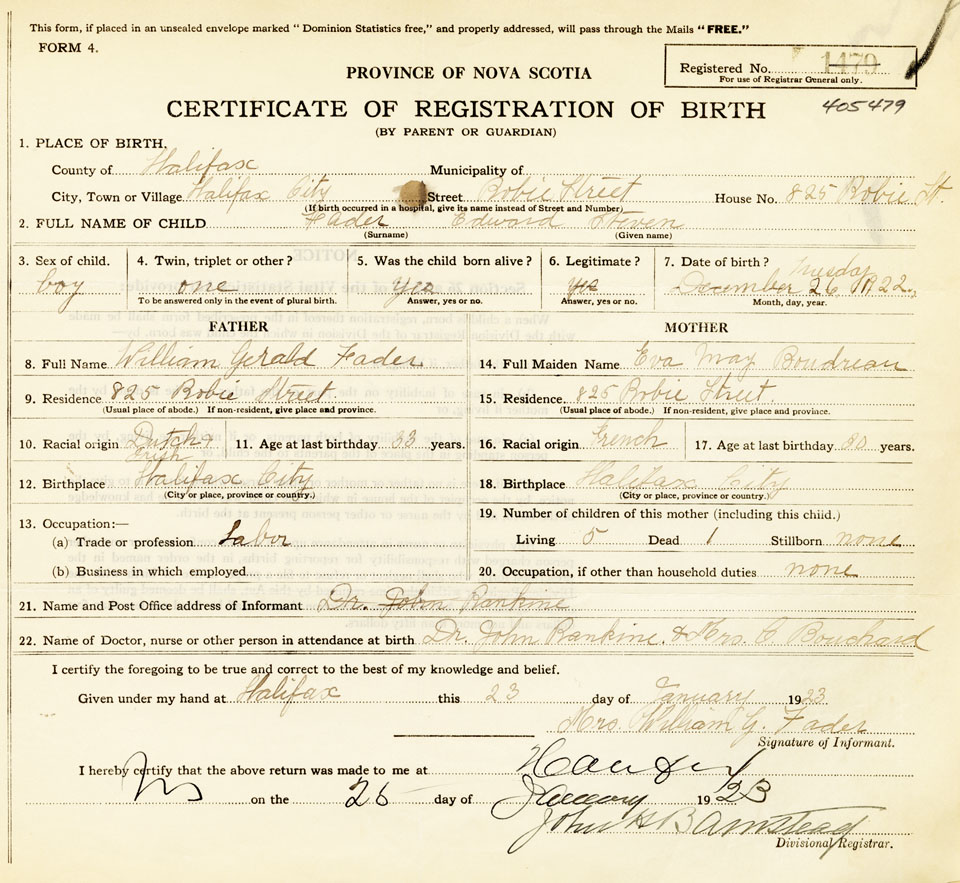 This form, if placed in an unsealed envelope marked "Dominion Statistics free," and properly addressed, will pass through the Mails "FREE."
FORM 4.
Registered No. 1479
For use of Registrar General only.
PROVINCE OF NOVA SCOTIA
405479
CERTIFICATE OF REGISTRATION OF BIRTH
(BY PARENT OR GUARDIAN)
1. PLACE OF BIRTH.
County of Halifax Municipality of
City, Town or Village Halifax City Street Robie Street House No. 825 Robie St.
(If birth occurred in a hospital, give its name instead of Street and Number)
2. FULL NAME OF CHILD Fader Edward Steven
(Surname) (Given name)
3. Sex of child. 4. Twin, triplet or other? 5. Was the child born alive? 6. Legitimate? 7. Date of birth? Tuesday
boy one yes yes December 26 1922.
To be answered only in the event of plural birth. Answer, yes or no. Answer, yes or no. Month, day, year.
FATHER MOTHER
8. Full Name William Gerald Fader 14. Full Maiden Name Eva May Boudreau
9. Residence 825 Robie Street 15. Residence. 825 Robie Street.
(Usual place of abode.) If non-resident, give place and province. (Usual place of abode.) If non-resident, give place and province.
10. Racial origin Dutch & Irish 11. Age at last birthday 33 years. 16. Racial origin French 17. Age at last birthday 30 years.
12. Birthplace Halifax City 18. Birthplace Halifax City
(City or place, province or country.) (City or place, province or country.)
13. Occupation:— 19. Number of children of this mother (including this child.)
(a) Trade or profession Labor Living 5 Dead 1 Stillborn none
(b) Business in which employed 20. Occupation, if other than household duties none
21. Name and Post Office address of Informant Dr. John Rankine
22. Name of Doctor, nurse or other person in attendance at birth Dr. John Rankine & Mrs. C Bouchard
I certify the foregoing to be true and correct to the best of my knowledge and belief.
Given under my hand at Halifax this 23 day of January 1923
Mrs. William G. Fader
Signature of Informant.
I hereby certify that the above return was made to me at
on the 26 day of January 1923
John H Barnstead
Divisional Registrar.